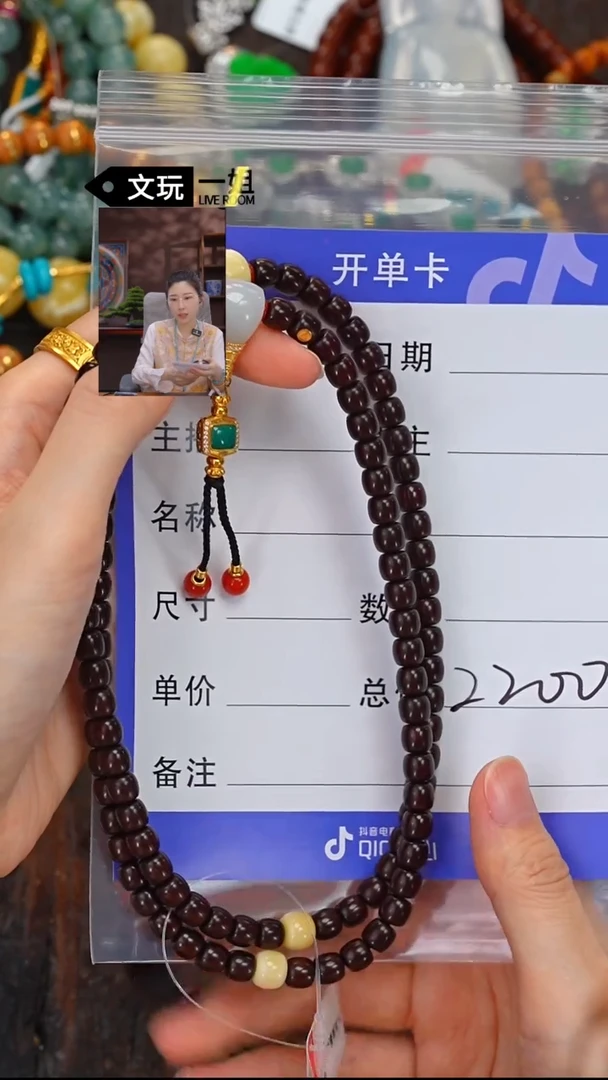 文玩一姐
LIVE ROOM
开单卡
日期
主
名称
尺寸 数
单价 总 2200
备注
抖音电